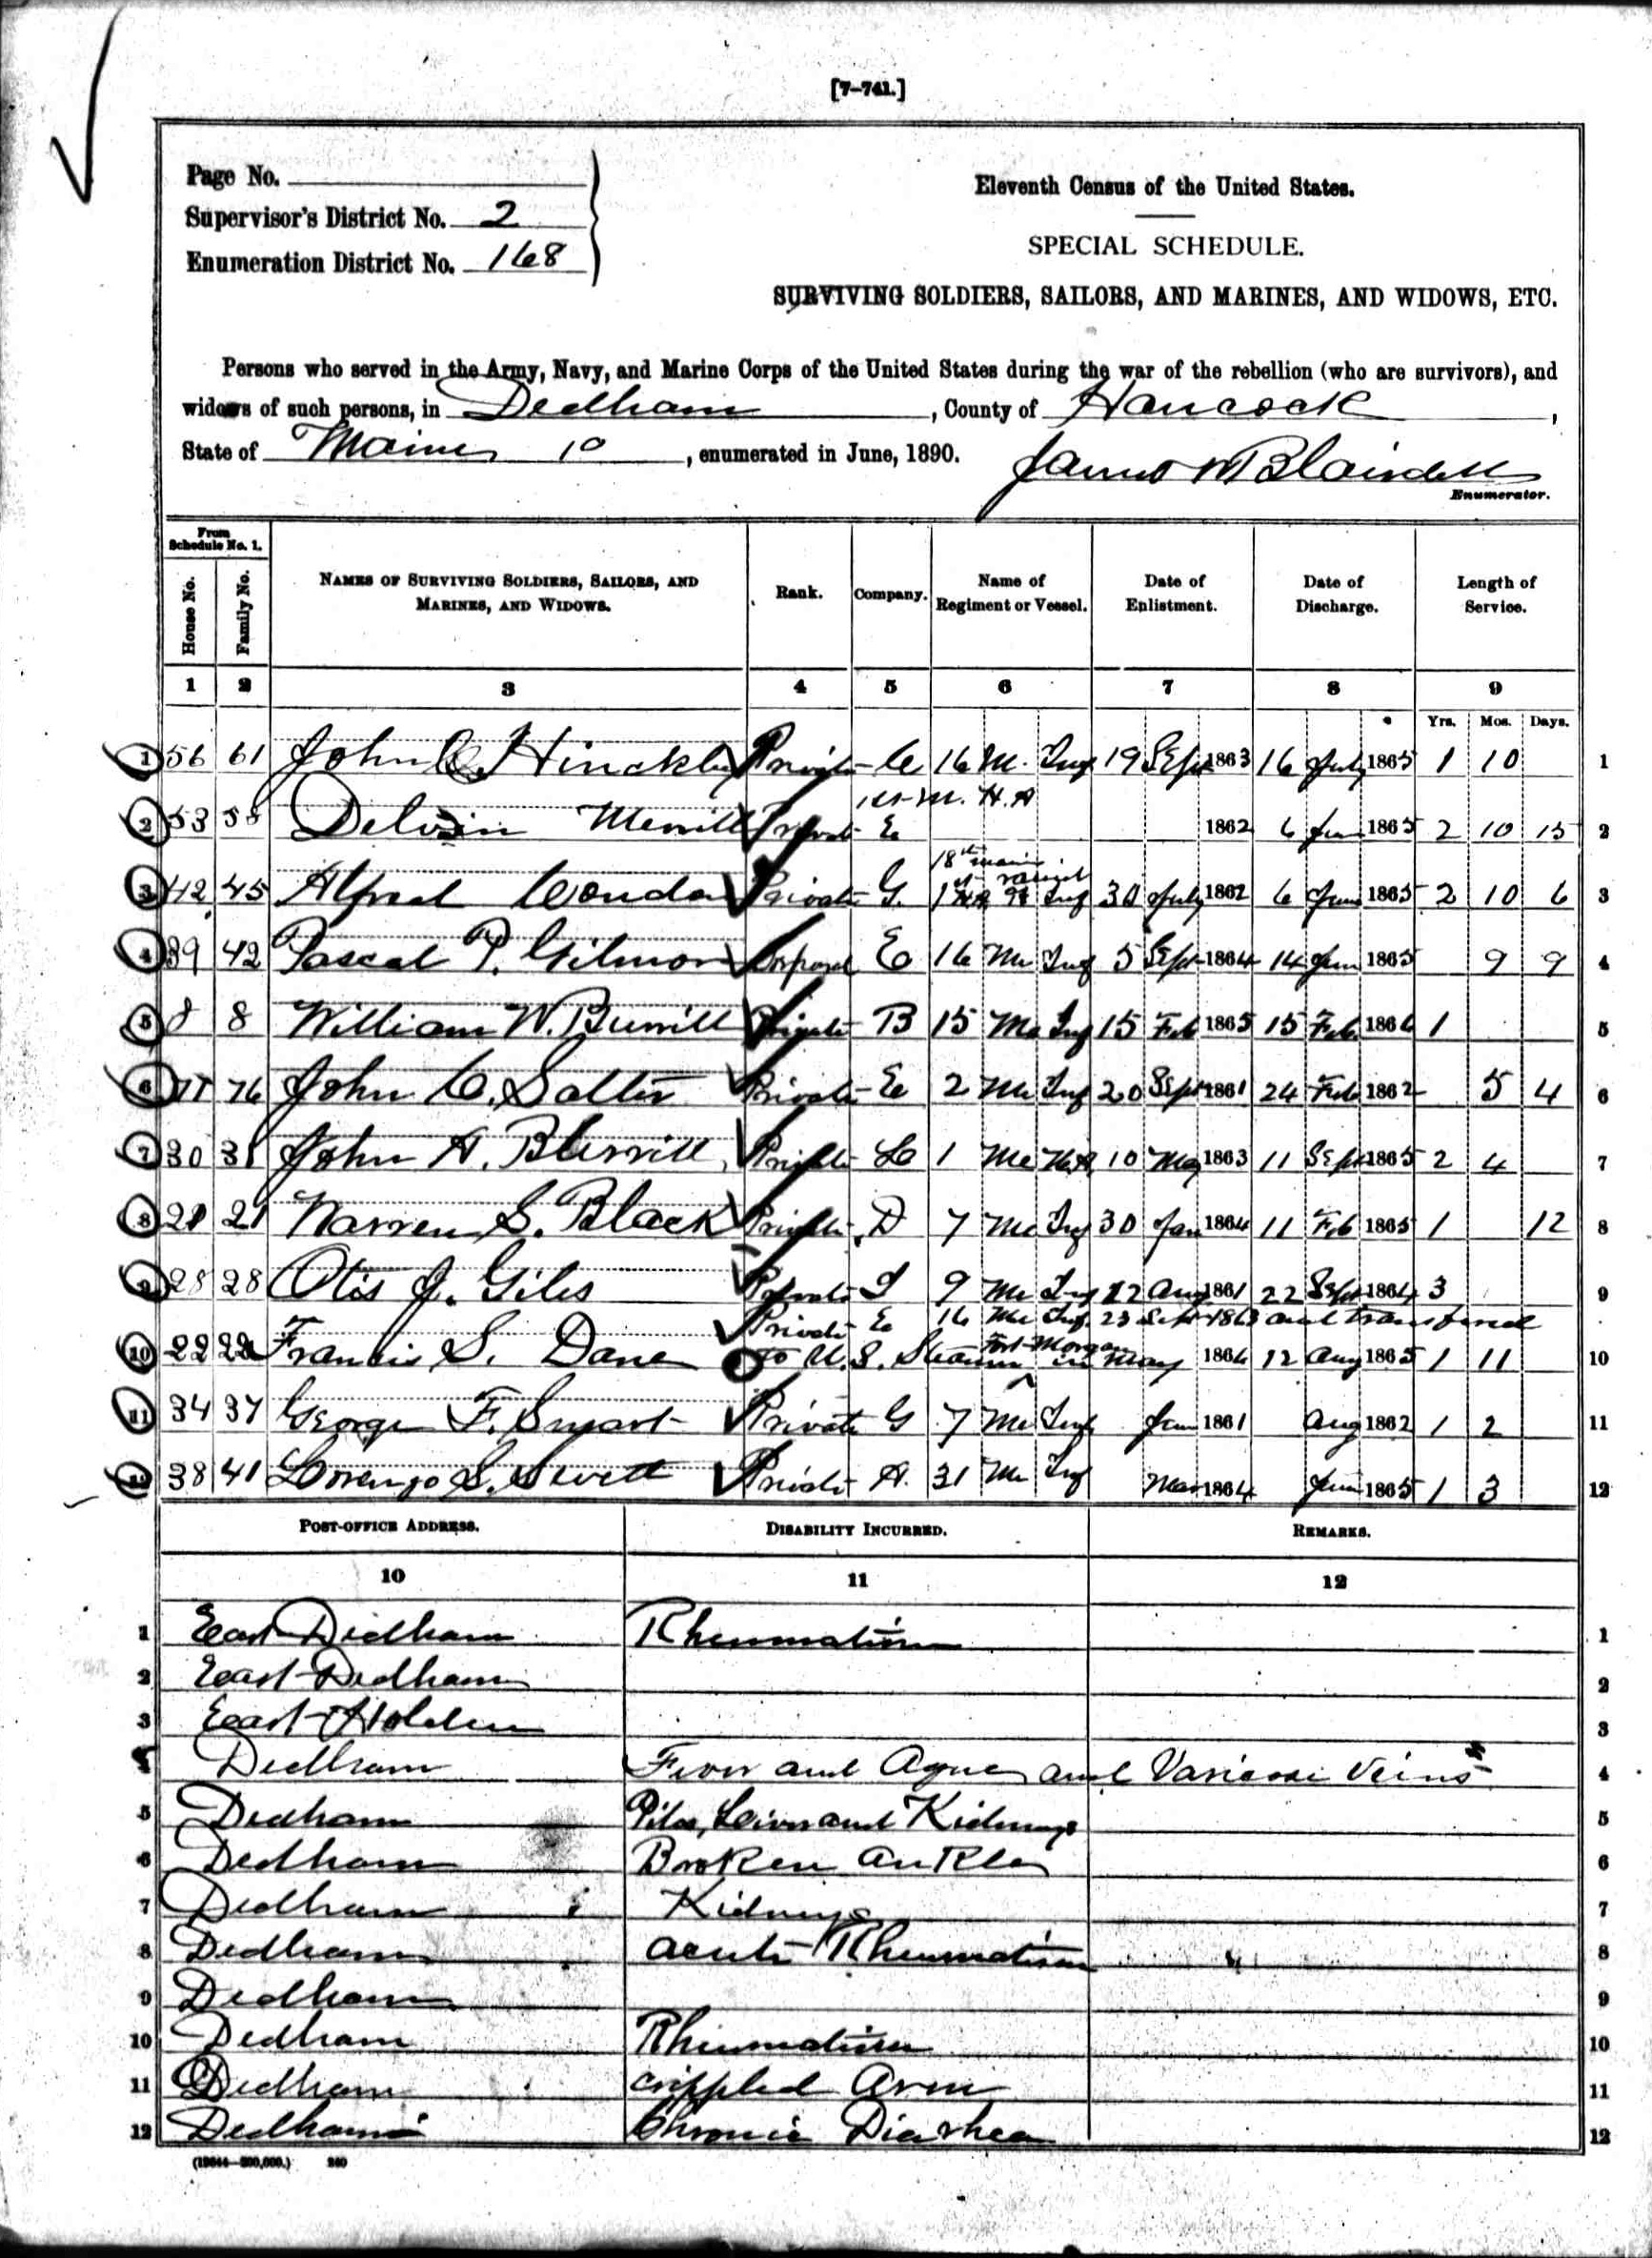 [7-741.]
Page No.
Supervisor's District No. 2
Enumeration District No. 168
Eleventh Census of the United States.
SPECIAL SCHEDULE.
SURVIVING SOLDIERS, SAILORS, AND MARINES, AND WIDOWS, ETC.
Persons who served in the Army, Navy, and Marine Corps of the United States during the war of the rebellion (who are survivors), and
widows of such persons, in Dedham, County of Hancock,
State of Maine 10, enumerated in June, 1890.
Enumerator.
From Schedule No. 1.
House No. Family No. NAMES OF SURVIVING SOLDIERS, SAILORS, AND MARINES, AND WIDOWS. Rank. Company. Name of Regiment or Vessel. Date of Enlistment. Date of Discharge. Length of Service.
1 2 3 4 5 6 7 8 9
Yrs. Mos. Days.
1 56 61 John C. Hinckley Private C 16 M. Inf 19 Sept 1863 16 July 1865 1 10 1
1st M. H.A
2 53 58 Delvin Merrill Private E 1862 6 Jun 1865 2 10 15 2
18th Maine
3 42 45 Alfred Condon Private G. 1 Inf 30 July 1862 6 June 1865 2 10 6 3
4 39 42 Pascal P. Gilmore Corporal E 16 Me Inf 5 Sept 1864 14 Jun 1865 9 9 4
5 8 8 William W. Burrill Private B 15 Me Inf 15 Feb 1865 15 Feb. 1866 1 5
6 71 76 John C. Salter Private E 2 Me Inf 20 Sept 1861 24 Feb 1862 5 4 6
7 30 31 John A. Burrill Private C 1 Me H.A. 10 May 1863 11 Sept 1865 2 4 7
8 21 21 Warren S. Black Private D 7 Me Inf 30 Jan 1864 11 Feb 1865 1 12 8
9 28 28 Otis J. Giles Private I 9 Me Inf 22 Aug 1861 22 Sept 1864 3 9
Private E 16 Me Inf. 23 Sept 1863 and transfered
10 22 22 Francis S. Dane to U.S. Steamer Fort Morgan in May 1864 12 Aug 1865 1 11 10
11 34 37 George F. Smart Private G 7 Me Inf Jun 1861 Aug 1862 1 2 11
12 38 41 Lorenzo S. Swett Private A. 31 Me Inf Mar 1864 June 1865 1 3 12
POST-OFFICE ADDRESS. DISABILITY INCURRED. REMARKS.
10 11 12
1 East Dedham Rheumatism 1
2 East Dedham 2
3 East Holden 3
4 Dedham Fever and Ague and Varicose Veins 4
5 Dedham Piles, Liver and Kidneys 5
6 Dedham Broken Ankle 6
7 Dedham Kidneys 7
8 Dedham acute Rheumatism 8
9 Dedham 9
10 Dedham Rheumatism 10
11 Dedham crippled Arm 11
12 Dedham Chronic Diarhea 12